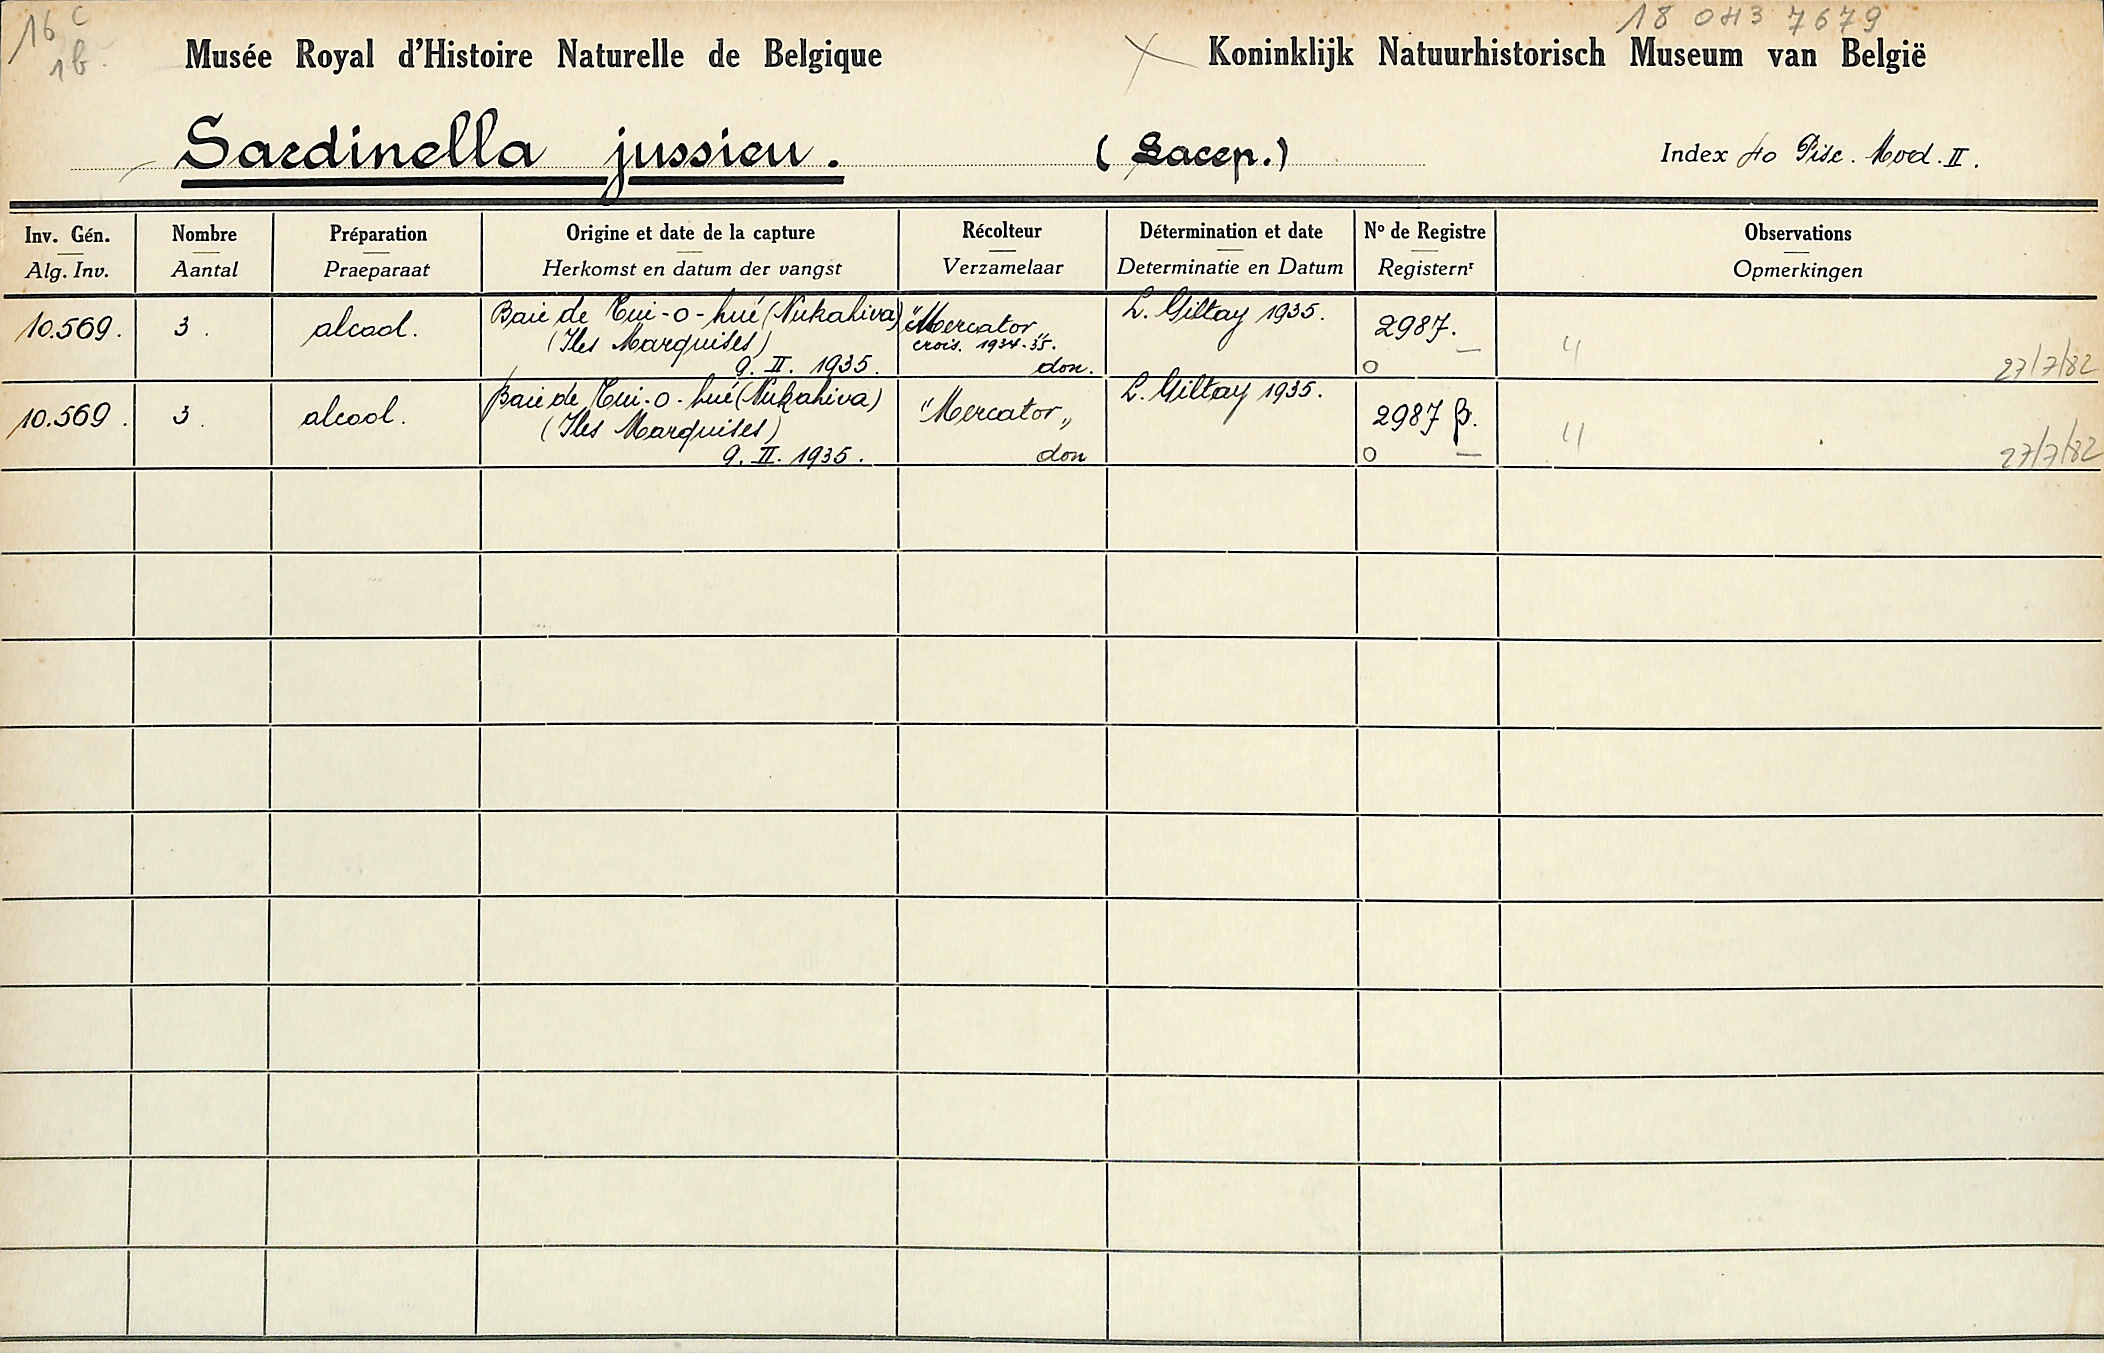 16 c
1b.
18 043 7679
Musée Royal d'Histoire Naturelle de Belgique
Koninklijk Natuurhistorisch Museum van België
Sardinella jussieu. (Lacep.) Index 40 Pisc. Mod. II.
Inv. Gén. Nombre Préparation Origine et date de la capture Récolteur Détermination et date Nº de Registre Observations
Alg. Inv. Aantal Praeparaat Herkomst en datum der vangst Verzamelaar Determinatie en Datum Registernʳ Opmerkingen
10.569. 3. alcool. Baie de Tui-o-hué (Nukahiva) "Mercator" L. Giltay 1935. 2987.
(Iles Marquises) crois. 1934-35.
9. II. 1935. don. o 27/7/82
10.569. 3. alcool. Baie de Tui-o-hué (Nukahiva) "Mercator" L. Giltay 1935. 2987 β.
(Iles Marquises)
9. II. 1935. don o 27/7/82